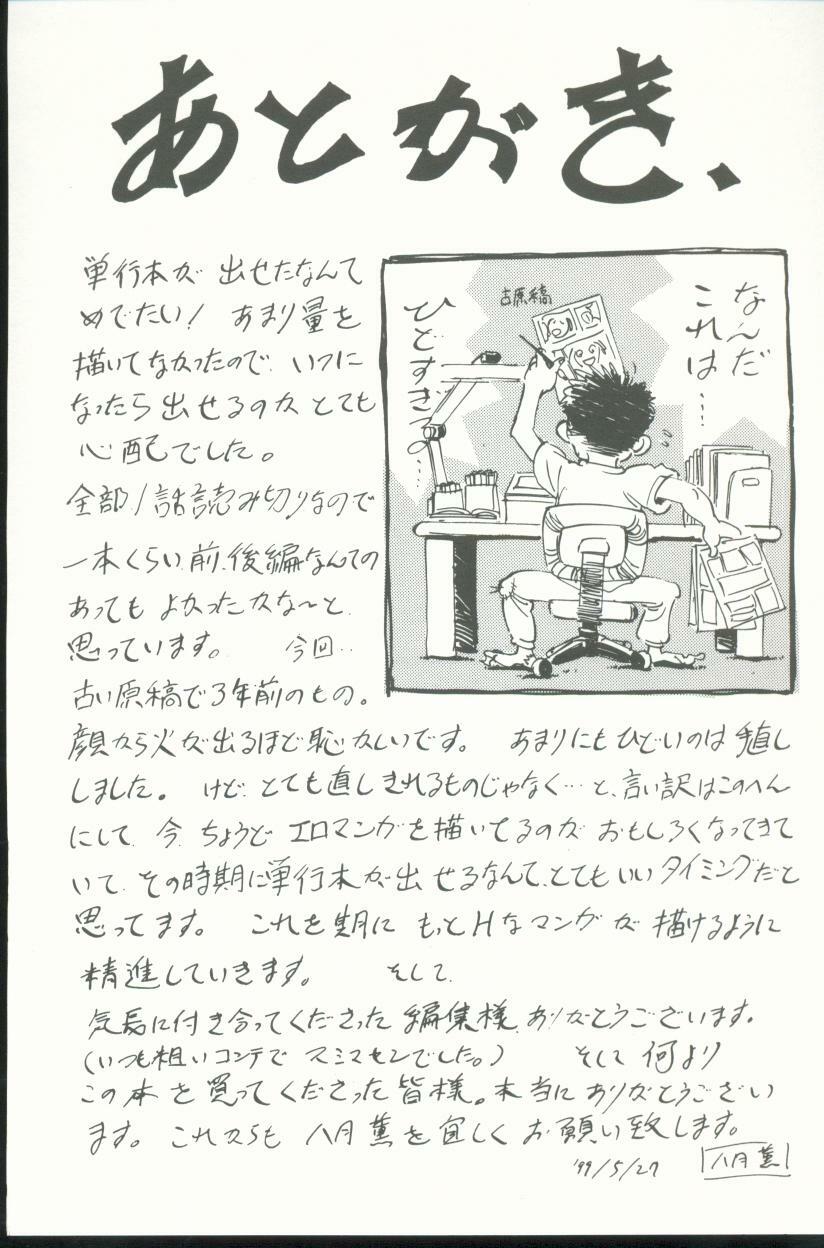 あとがき、
単行本が出せたなんて
めでたい！ あまり量を
描いてなかったので、いつに
なったら出せるのかとても
心配でした。
全部1話読み切りなので
一本くらい前、後編なんての
あってもよかったかな〜と
思っています。 今回‥
古い原稿で3年前のもの。
顔から火が出るほど恥かしいです。 あまりにもひどいのは直し
しました。 けど、とても直しきれるものじゃなく…と、言い訳はこのへん
にして、今、ちょうどエロマンガを描いてるのがおもしろくなってきて
いて、その時期に単行本が出せるなんて、とてもいいタイミングだと
思ってます。 これを期にもっとHなマンガが描けるように
精進していきます。 そして、
気長に付き合ってくださった編集様、ありがとうございます。
（いつも粗いコンテでスミマセンでした。） そして何より
この本を買ってくださった皆様。本当にありがとうござい
ます。これからも八月薫を宜しくお願い致します。
'99/5/27 八月薫
なんだ
これは……
古原稿
ひどすぎるの…